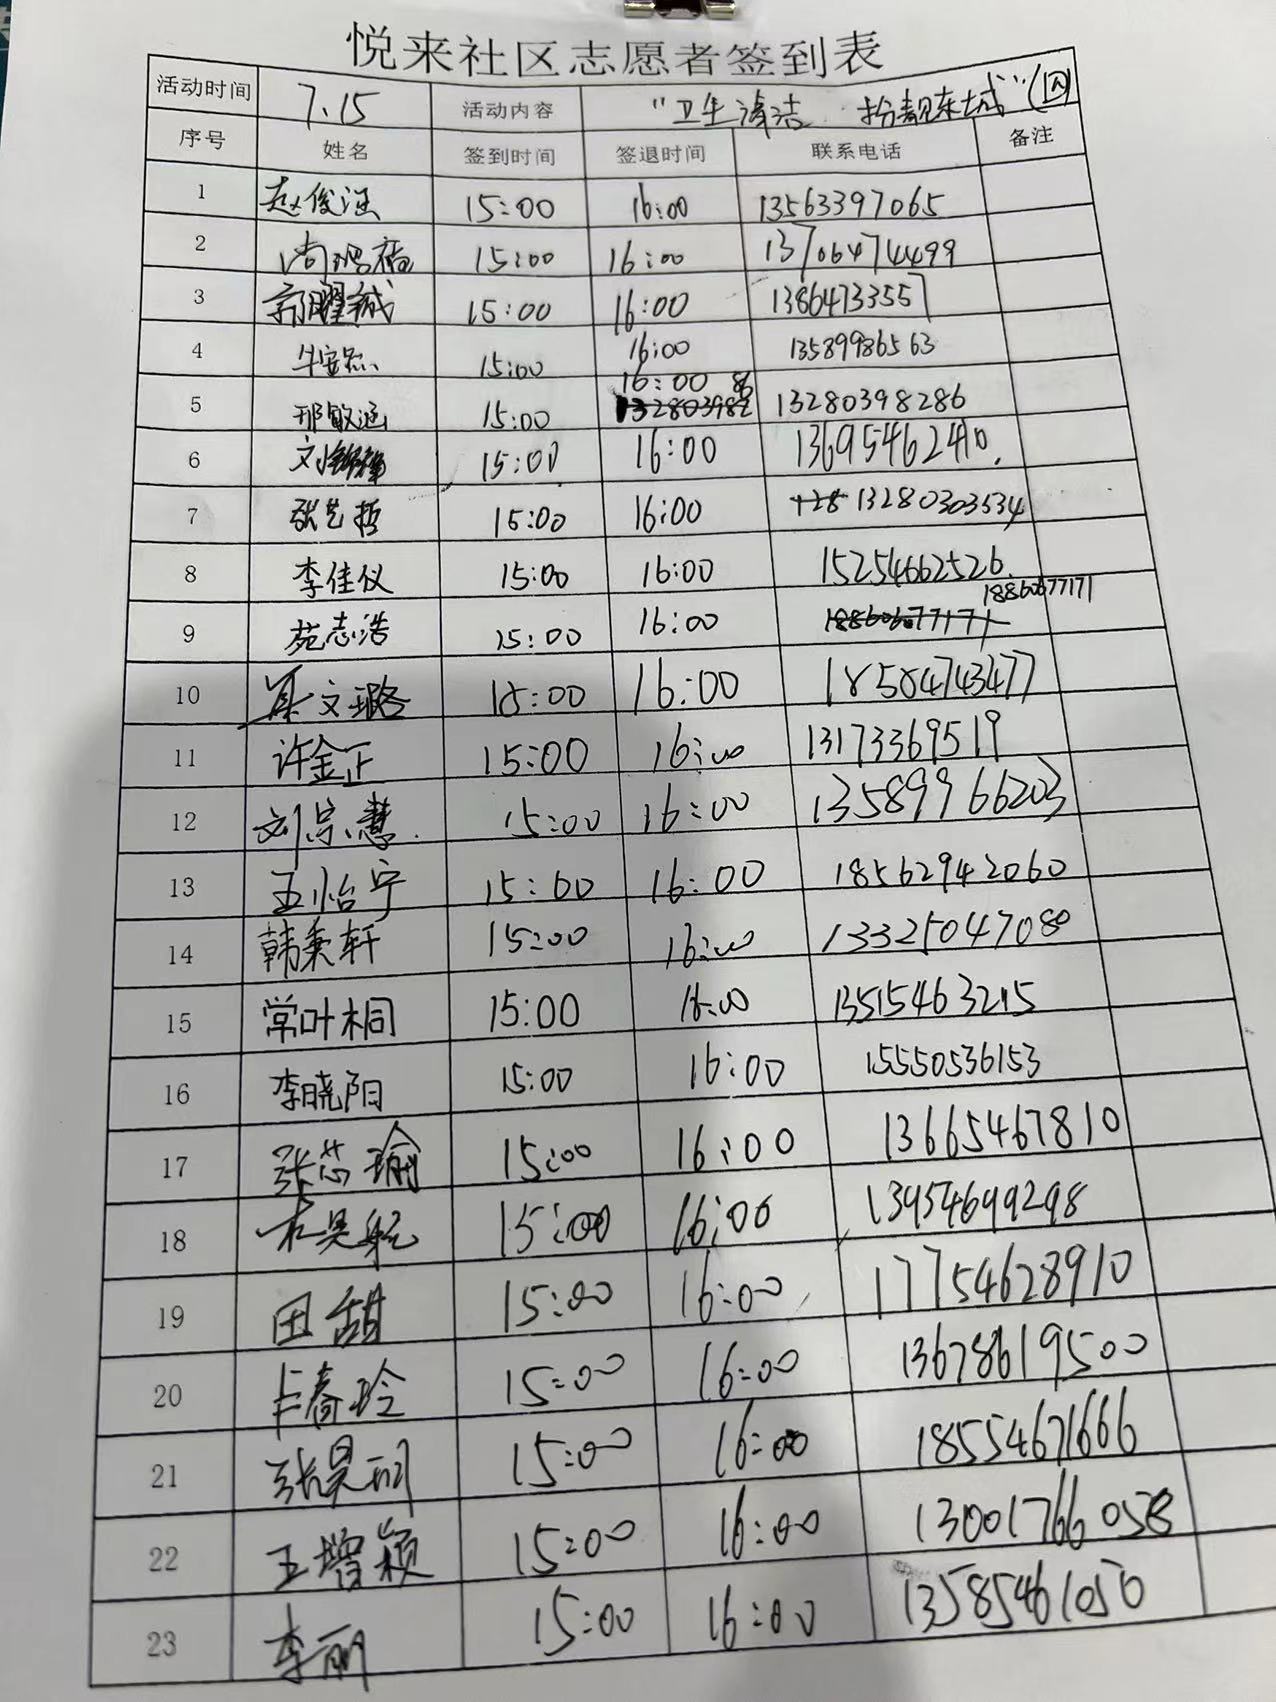 悦来社区志愿者签到表
活动时间 7.15 活动内容 "卫生清洁 扮靓东城"(四)
序号 姓名 签到时间 签退时间 联系电话 备注
1 赵俊涵 15:00 16:00 13563397065
2 尚鸿福 15:00 16:00 13706474499
3 15:00 16:00 13864733557
4 15:00 16:00 13589986563
5 邢敏涵 15:00 16:00 13280398286
6 15:00 16:00 13695462410
7 张艺哲 15:00 16:00 13280303534
8 李佳仪 15:00 16:00 15254662526
9 苑志浩 15:00 16:00 18860677171
10 15:00 16:00 18504743477
11 许金正 15:00 16:00 13173369519
12 刘宗慧 15:00 16:00 13589966203
13 王怡宁 15:00 16:00 18562942060
14 韩秉轩 15:00 16:00 13325047080
15 常叶桐 15:00 16:00 13515463215
16 李晓阳 15:00 16:00 15550536153
17 张芯瑜 15:00 16:00 13665467810
18 15:00 16:00 13954699298
19 田甜 15:00 16:00 17754628910
20 卡春玲 15:00 16:00 13678619500
21 张昊明 15:00 16:00 18554671666
22 王增颖 15:00 16:00 13001766058
23 李丽 15:00 16:00 13585461050